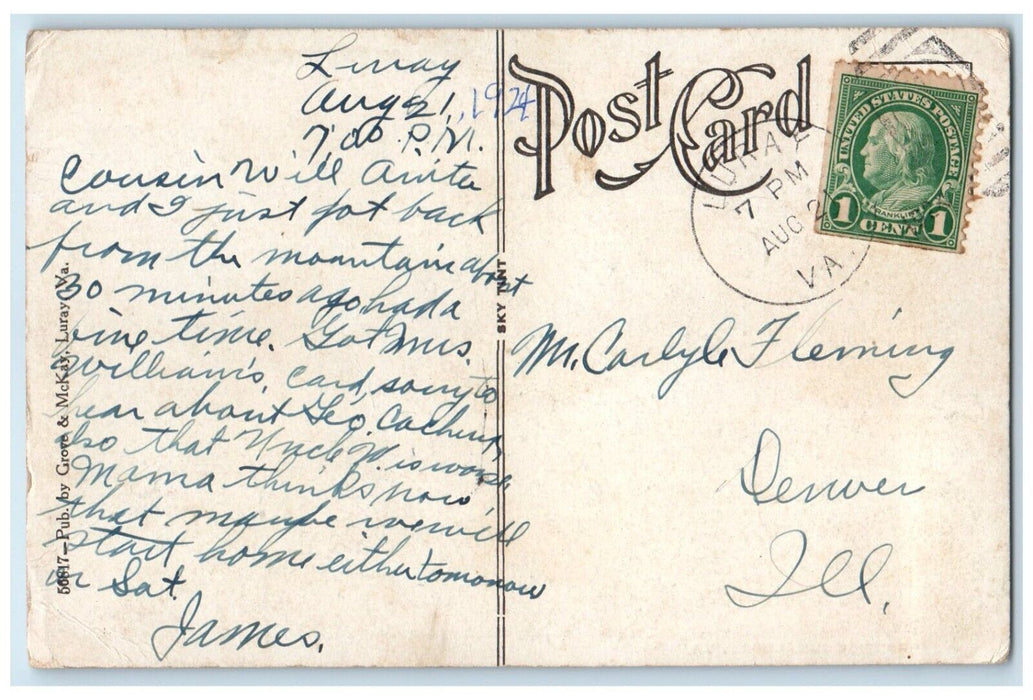 Luray
Aug 21, 1924
7:00 P.M.
Cousin Will Anita
and I just got back
from the mountain about
30 minutes ago had a
fine time. Got Mrs.
William's, card, sorry to
hear about Geo.
also that Uncle W. is worse,
Mama thinks now
that maybe we will
start home either tomorrow
or Sat.
James.
50817—Pub. by Grove & McKay, Luray, Va.
SKY TINT
Post Card
LURAY
7 PM
AUG 21
VA.
UNITED STATES POSTAGE
FRANKLIN
1 CENT 1
Mr. Carlyle Fleming
Denver
Ill.